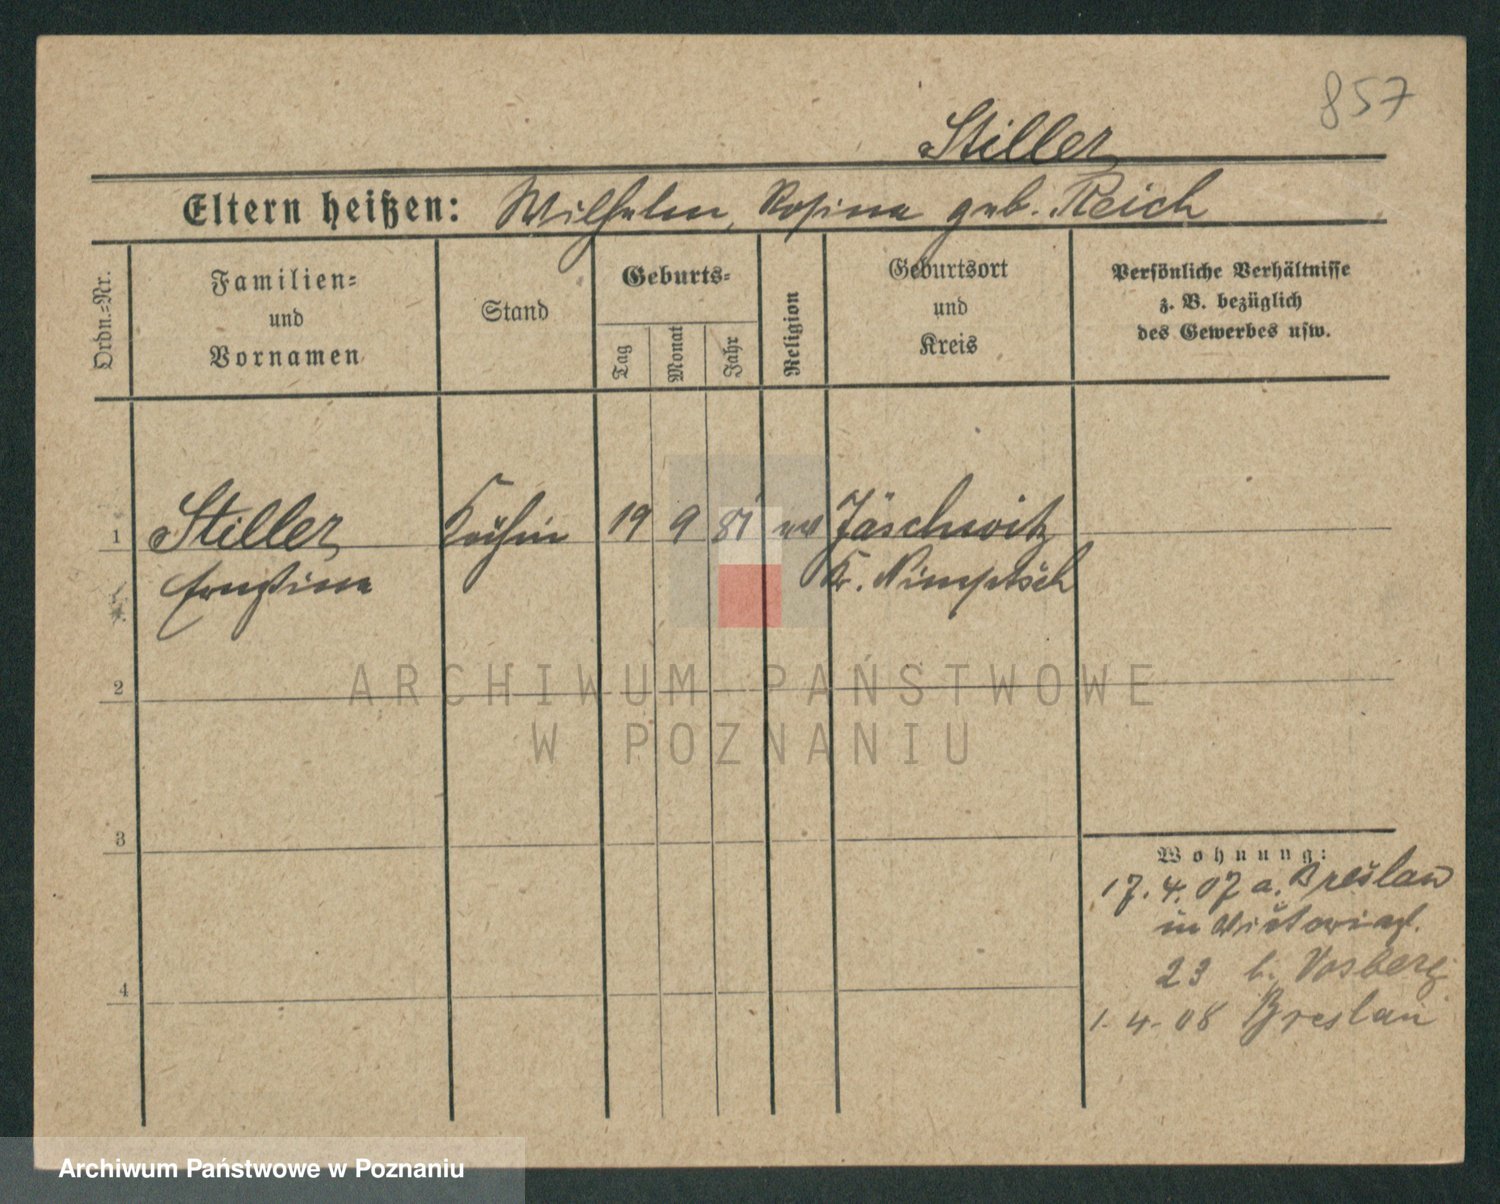 857
Stiller
Eltern heißen: Wilhelm, Rosina geb. Reich
Ordn.=Nr.
Familien=
und
Vornamen
Stand
Geburts=
Tag
Monat
Jahr
Religion
Geburtsort
und
Kreis
Persönliche Verhältnisse
z. B. bezüglich
des Gewerbes usw.
1 Stiller Köchin 19 9 81 ev Jäschwitz
Ernstine Kr. Nimptsch
2
3
4
Wohnung:
17.4.07 a. Breslau
in Victoriast.
23 b. Vosberg
1.4.08 Breslau
ARCHIWUM PAŃSTWOWE
W POZNANIU
Archiwum Państwowe w Poznaniu